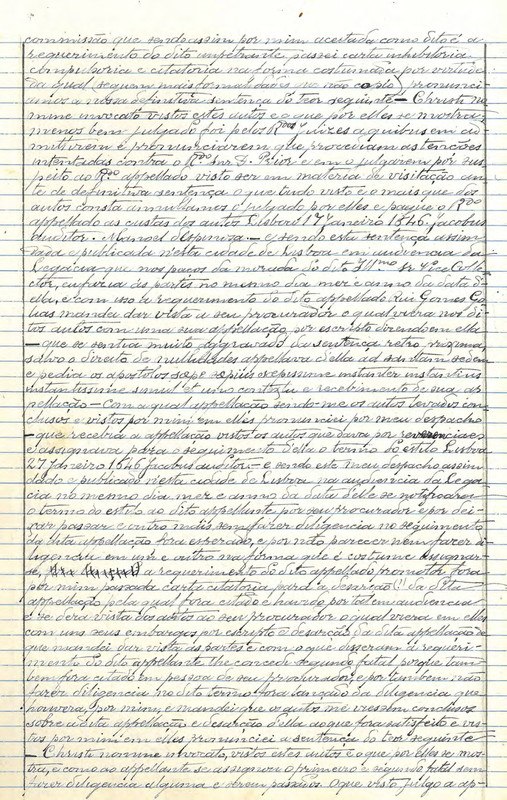 commissão que sendo assim por mim aceitada como dito é a
requerimento do dito impetrante passei carta inhibitoria
compulsoria e citatoria na forma costumada, por virtude
da qual (seguem mais formalidades que não copio) pronunci-
amos a nossa definitiva sentença do teor seguinte — Christi no-
mine invocato vistos estes autos e o que por elles se mostra,
menos bem julgado foi pelos Rdos juizes a quibus em ad-
mittirem e pronunciarem que procediam as tenções
intentadas contra o Rdo Prior e em o julgarem por sus-
peito ao Rdo appellado visto ser em materia de visitação an-
te de definitiva sentença o que tudo visto e o mais que dos
autos consta annullamos o julgado por elles e pague o Rdo
appellado as custas dos autos Lisboa 17 Janeiro 1646 jacobus
auditor. Manoel despinoza — e sendo esta sentença assim
dada e publicada nesta cidade de Lisboa em audiencia da
Legacia que nos paços da morada do dito Illmo Sr Vice Colle-
ctor, se fazia ás partes no mesmo dia mez e anno da data
d'ella, e com isso a requerimento do dito appellado Rui Gomes Go-
lias mandei dar vista a seu procurador o qual viera nos di-
tos autos com uma sua appellação por escripto dizendo em ella
— que se sentia muito aggravado da sentença retro proxima,
salvo o direito de nullidades appellava d'ella ad santam sedem
e pedia os apostolos sepe sepius sepissime instanter instantius
instantissime simul et uno contextu e recebimento de sua ap-
pellação — Com a qual appellação sendo-me os autos levados con-
clusos e vistos por mim em elles pronunciei por meu despacho
— que recebia a appellação vistos os autos que dava por reverenciaes
e assignava para o seguimento d'ella o termo do estilo Lisboa
27 Janeiro 1646 jacobus auditor — e sendo este meu despacho assim
dado e publicado nesta cidade de Lisboa na audiencia da Lega-
cia no mesmo dia mez e anno da data d'elle se notificara
o termo do estilo ao dito appellante por seu procurador e por dei-
xar passar e outro mais sem fazer diligencia no seguimento
da dita appellação fora esperado, e por não parecer nem fazer di-
ligencia em um e outro na forma que é costume assignar-
se, a requerimento do dito appellado promotor fora
por mim passada carta citatoria para a deserção (!) da dita
appellação pela qual fora citado e havido por tal em audiencia
e se dera vista dos autos ao seu procurador o qual viera em elles
com uns seus embargos por escripto á deserção da dita appellação de
que mandei dar vista ás partes e com o que disseram a requeri-
mento do dito appellante lhe concedi segundo fatal porque tam-
bem fora citado em pessoa de seu procurador, e por tambem não
fazer diligencia no dito termo fora lançado da diligencia que
houvera, por mim, e mandei que os autos me viessem conclusos
sobre a dita appellação e deserção d'ella ao que fora satisfeito e vis-
tos por mim em elles pronunciei a sentença do teor seguinte
— Christi nomine invocato, vistos estes autos e o que por elles se mos-
tra, e como ao appellante se assignou o primeiro e segundo fatal sem
fazer diligencia alguma e serem passados. O que visto julgo a ap-